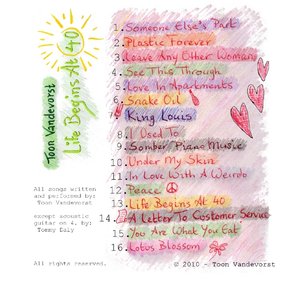 Toon Vandevorst
Life Begins At 40
1. Someone Else's Part
2. Plastic Forever
3. Leave Any Other Woman
4. See This Through
5. Love In Apartments
6. Snake Oil
7. King Louis
8. I Used To
9. Somber Piano Music
10. Under My Skin
11. In Love With A Weirdo
12. Peace
13. Life Begins At 40
14. A Letter To Costomer Service
15. You Are What You Eat
16. Lotus Blossom
All songs written
and performed by:
Toon Vandevorst
except acoustic
guitar on 4. by:
Tommy Daly
All rights reserved.
© 2010 - Toon Vandevorst